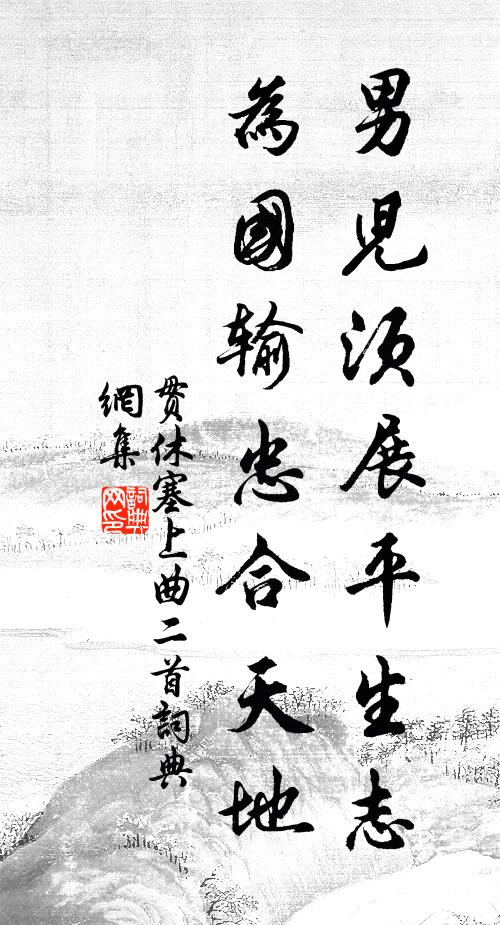 男兒須展平生志
為國輸忠合天地
貫休塞上曲二首詞典
網集
詞典
网印